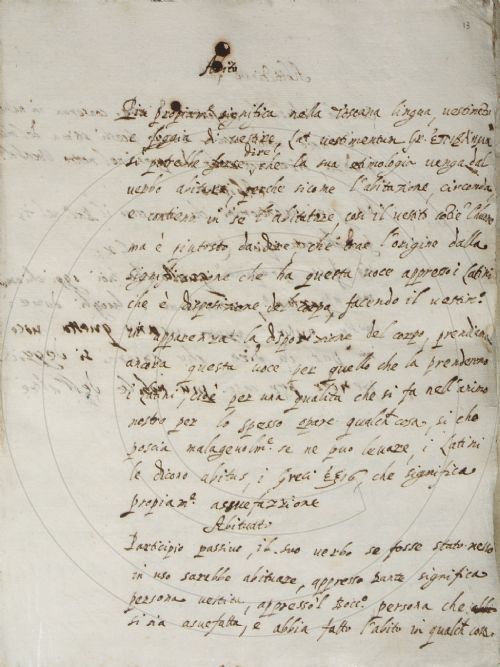 13
Abito
Più propiam.te significa nella Toscana lingua vestimento
e foggia di vestire, Lat. vestimentum Gr.
si potrebbe forse dire che la sua etimologia venga dal
verbo abitare, perche sicome l'abitazione circonda
e contiene in se l'abitatore cosi il vestito
ma è piutosto da dire che trae l'origine dalla
significazione che ha questa voce appresso i Latini
che è disposizione de corpo, facendo il vestire
in apparenza la disposizione del corpo, prendesi
ancora questa voce per quello che la prendeno
i Latini cioè per una qualità che si fa nell'animo
nostro per lo spesso opare qualch cosa, si che
poscia malagevolm.e se ne puo levare, i Latini
le dicono abitus, i Greci ἕξις, che significa
propiam.te asuefazzione
Abituato
Participio passivo, il suo verbo se fosse stato messo
in uso sarebbe abituare, appresso Dante significa
persona vestita, appresso'l Bocc.o persona che
si sia asuefatta, e abbia fatto l'abito in qualch cosa